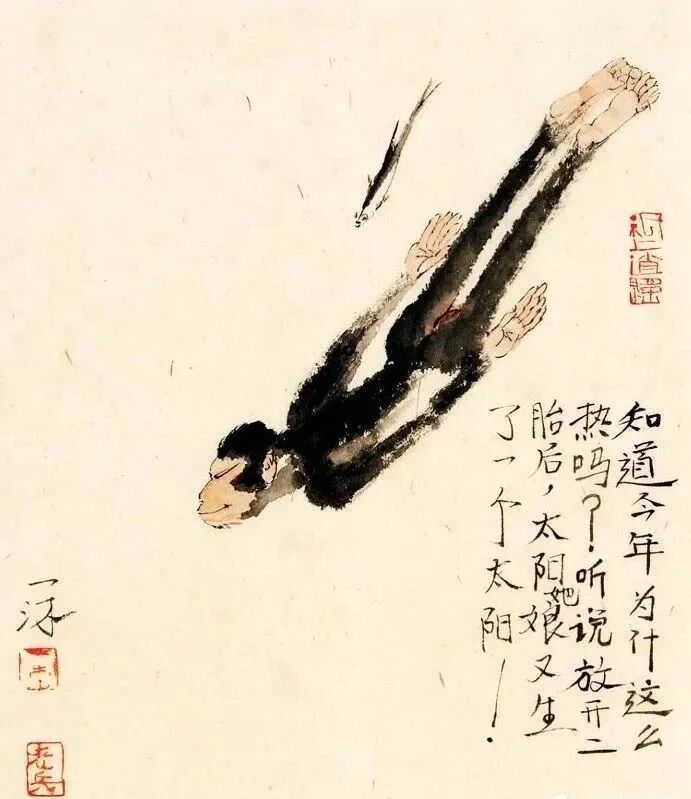 知道今年为什这么
热吗？！听说放开二
胎后，太阳她娘又生
了一个太阳！